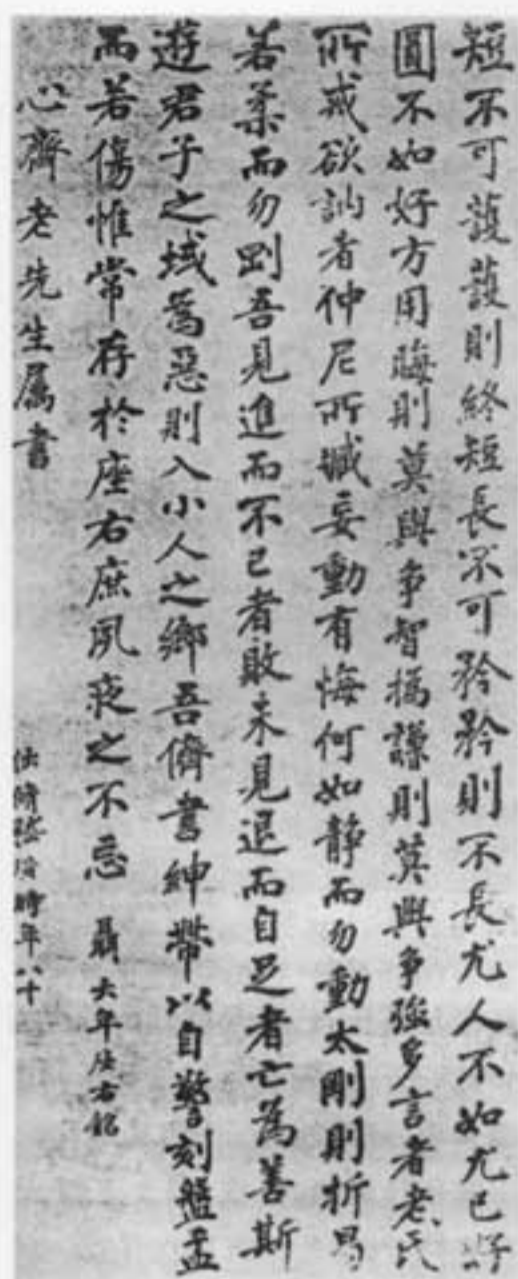 短不可護護則終短長不可矜矜則不長尤人不如尤己好
圓不如好方用晦則莫與爭智撝謙則莫與爭強多言者老氏
所戒欲訥者仲尼所臧妄動有悔何如靜而勿動太剛則折曷
若柔而勿剛吾見進而不已者敗未見退而自足者亡為善斯
遊君子之域為惡則入小人之鄉吾儕書紳帶以自警刻盤盂
而若傷惟常存於座右庶夙夜之不忘 聶大年座右銘
心齋老先生属書
時年八十